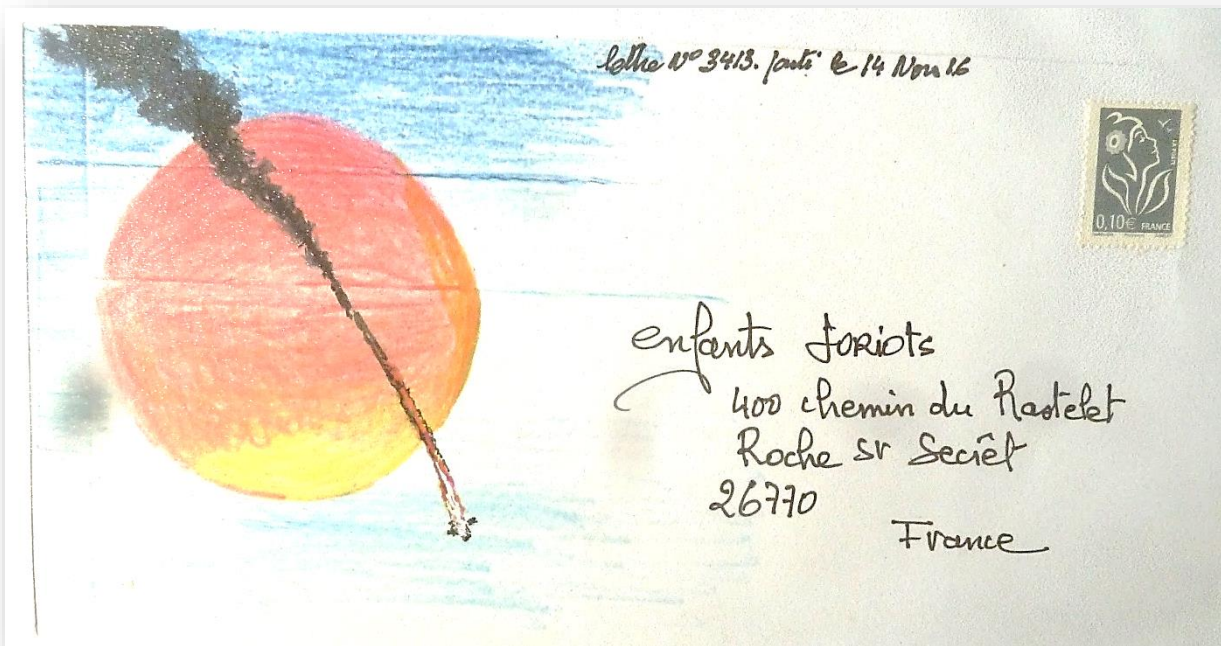 lettre N° 3413. posté le 14 Nov 16
0,10€ FRANCE
LA POSTE
enfants JORiots
400 chemin du Rastelet
Roche sr Secrêt
26770
France